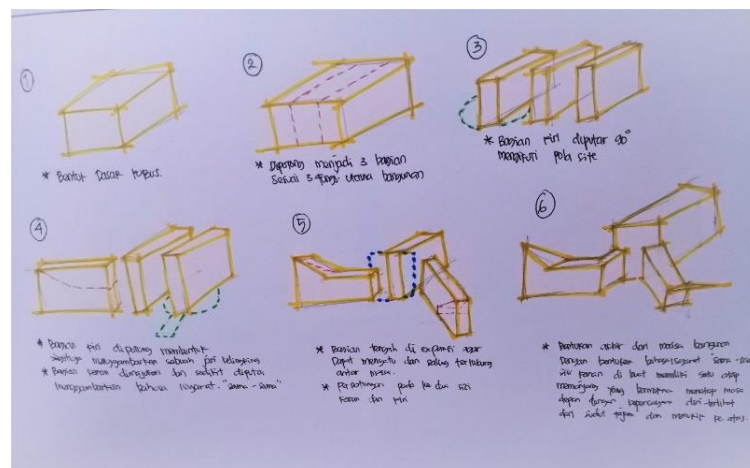 1
* Bentuk Dasar kubus.
2
* Dipotong menjadi 3 bagian
Sesuai 3 fungsi utama bangunan
3
* Bagian kiri diputar 90°
Mengikuti pola site
4
* Bagian kiri dipotong membentuk
menggambarkan sebuah jari kelingking
* Bagian kanan dan sedikit diputar
menggambarkan bahasa isyarat "sama-sama"
5
* Bagian tengah di expansi agar
Dapat menyatu dan saling terhubung
antar masa.
* Pemotongan pada ke dua sisi
kanan dan kiri
6
* Bentukan akhir dari masa bangunan
Dengan bentukan bahasa isyarat "sama-sama"
sisi kanan di buat memiliki satu atap
memanjang yang bermakna menatap masa
depan dengan kepercayaan diri terlihat
dari sudut tajam dan ke atas.